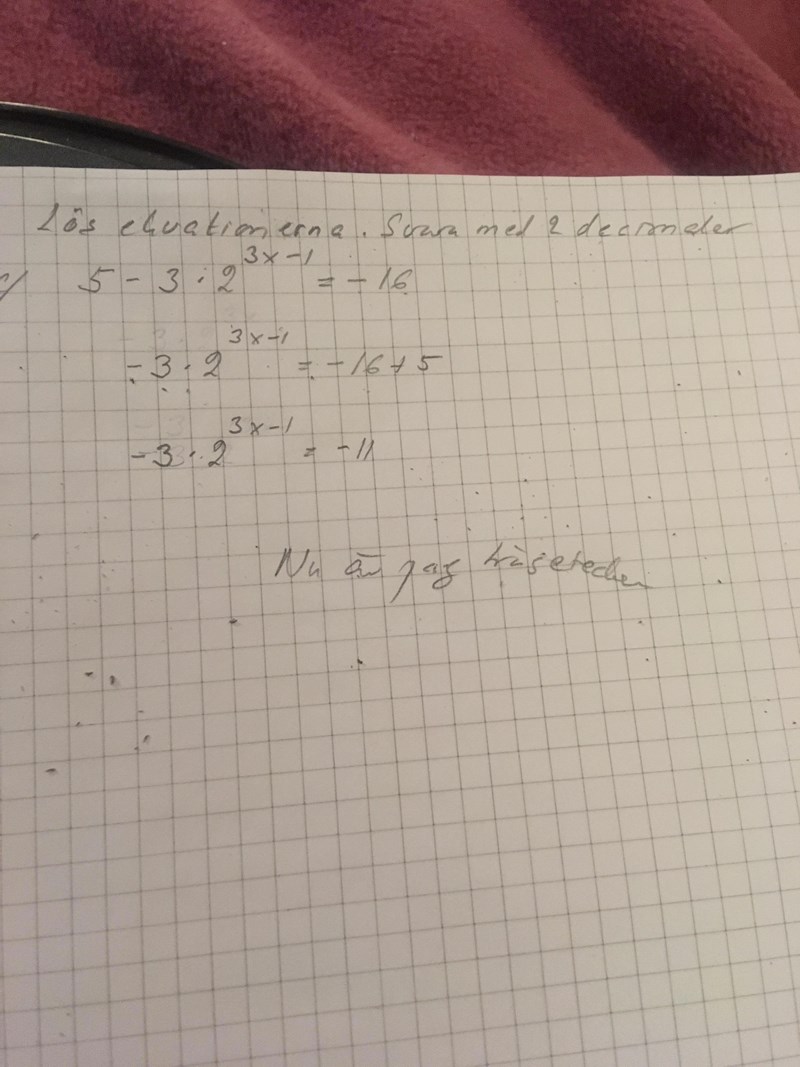 Lös ekvationerna. Svara med 2 decimaler
c/ 5 - 3 · 2^{3x-1} = -16
-3 · 2^{3x-1} = -16+5
-3 · 2^{3x-1} = -11
Nu är jag frågetecken